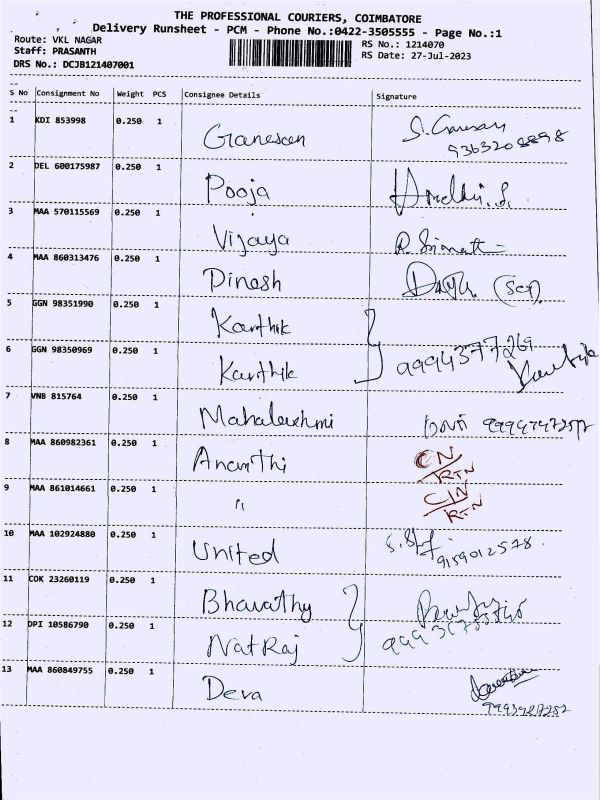 THE PROFESSIONAL COURIERS, COIMBATORE
Delivery Runsheet - PCM - Phone No.:0422-3505555 - Page No.:1
Route: VKL NAGAR
Staff: PRASANTH
DRS No.: DCJB121407001
RS No.: 1214070
RS Date: 27-Jul-2023
S No Consignment No Weight PCS Consignee Details Signature
1 KDI 853998 0.250 1 Ganesan
9363208898
2 DEL 600175987 0.250 1 Pooja
3 MAA 570115569 0.250 1 Vijaya
4 MAA 860313476 0.250 1 Dinesh
5 GGN 98351990 0.250 1 Karthik
6 GGN 98350969 0.250 1 Karthik 9994377269
7 VNB 815764 0.250 1 Mahalakshmi
8 MAA 860982361 0.250 1 Ananthi CN/RTN
9 MAA 861014661 0.250 1 " CN/RTN
10 MAA 102924880 0.250 1 United 9159012578
11 COK 23260119 0.250 1 Bharathy
12 DPI 10586790 0.250 1 NatRaj
13 MAA 860849755 0.250 1 Deva